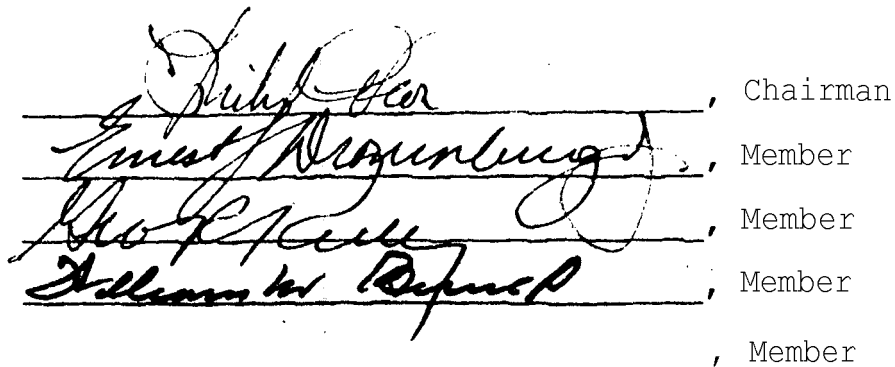 , Chairman
Ernest J. Dronenburg Jr. , Member
Geo R. Reilly , Member
William M Bennett , Member
, Member